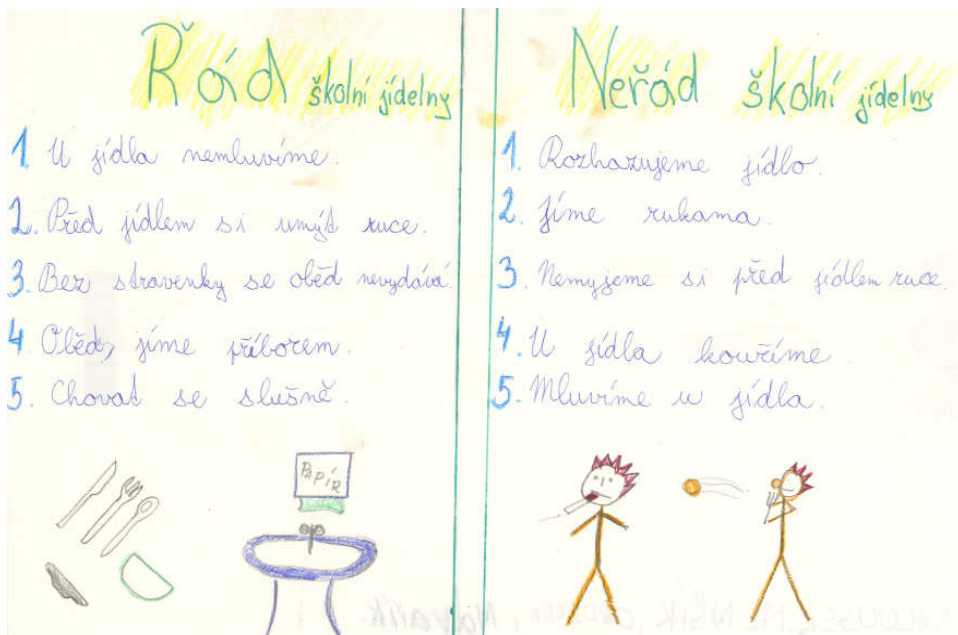 Řád školní jídelny
1. U jídla nemluvíme.
2. Před jídlem si umýt ruce.
3. Bez stravenky se oběd nevydává.
4. Oběd, jíme příborem.
5. Chovat se slušně.
PAPÍR
Neřád školní jídelny
1. Rozhazujeme jídlo.
2. Jíme rukama.
3. Nemyjeme si před jídlem ruce.
4. U jídla kouříme.
5. Mluvíme u jídla.